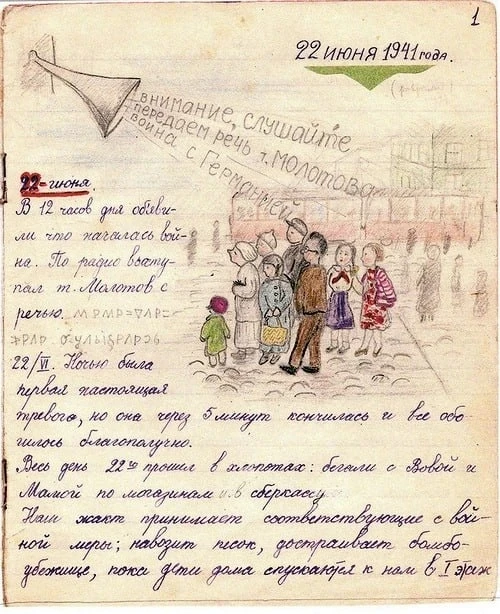 1
22 июня 1941 года.
внимание, слушайте
передаем речь т. Молотова
война с Германией
22-июня.
В 12 часов дня обьяви-
ли что началась вой-
на. По радио высту-
пал т. Молотов с
речью.
22/VI. Ночью была
первая настоящая
тревога, но она через 5 минут кончилась и все обо-
шлось благополучно.
Весь день 22го прошел в хлопотах: бегали с Вовой и
Мамой по магазинам и в сберкассу
Наш жакт принимает соответствующие с вой-
ной меры; навозит песок, достраивает бомбо-
убежище, пока дети дома спускаются к нам в I этаж